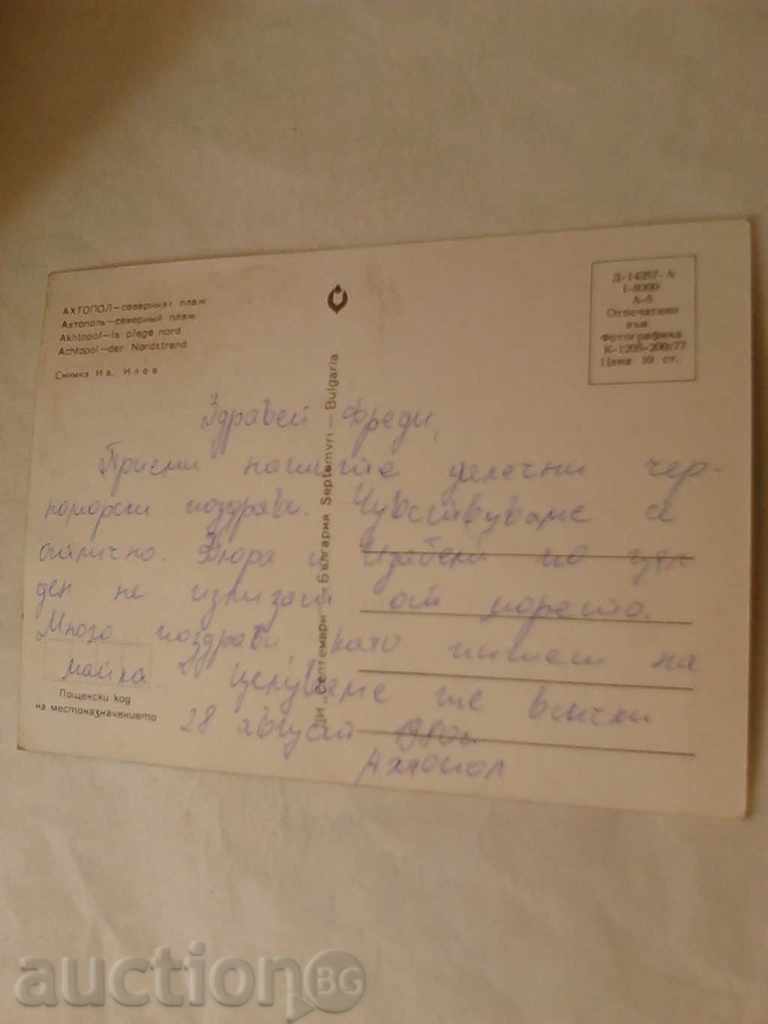 АХТОПОЛ — северният плаж
Ахтополь — северный пляж
Akhtopol — la plage nord
Achtopol — der Nordstrand
Снимка Ив. Илев
Д-14257-А
I-8000
А-5
Отпечатано
във
Фотографика
К-1205-200/77
Цена 10 ст.
ДИ „Септември“ България Septemvri — Bulgaria
Здравей Фреди,
Приеми нашите далечни чер-
номорски поздрави. Чувствуваме се
отлично. и по цял
ден не излизат от морето.
Много поздрави, като пишеш на
майка целуваме те всички
28 август
Ахтопол
Пощенски код
на местоназначението
auctionBG